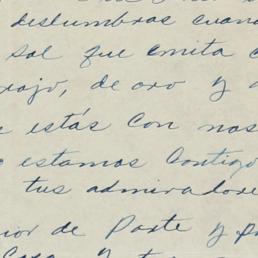 deslumbras cuand
sol que emita
rojo, de oro y a
estás con nos
estamos contigo
tus admiradore
de Parte y p